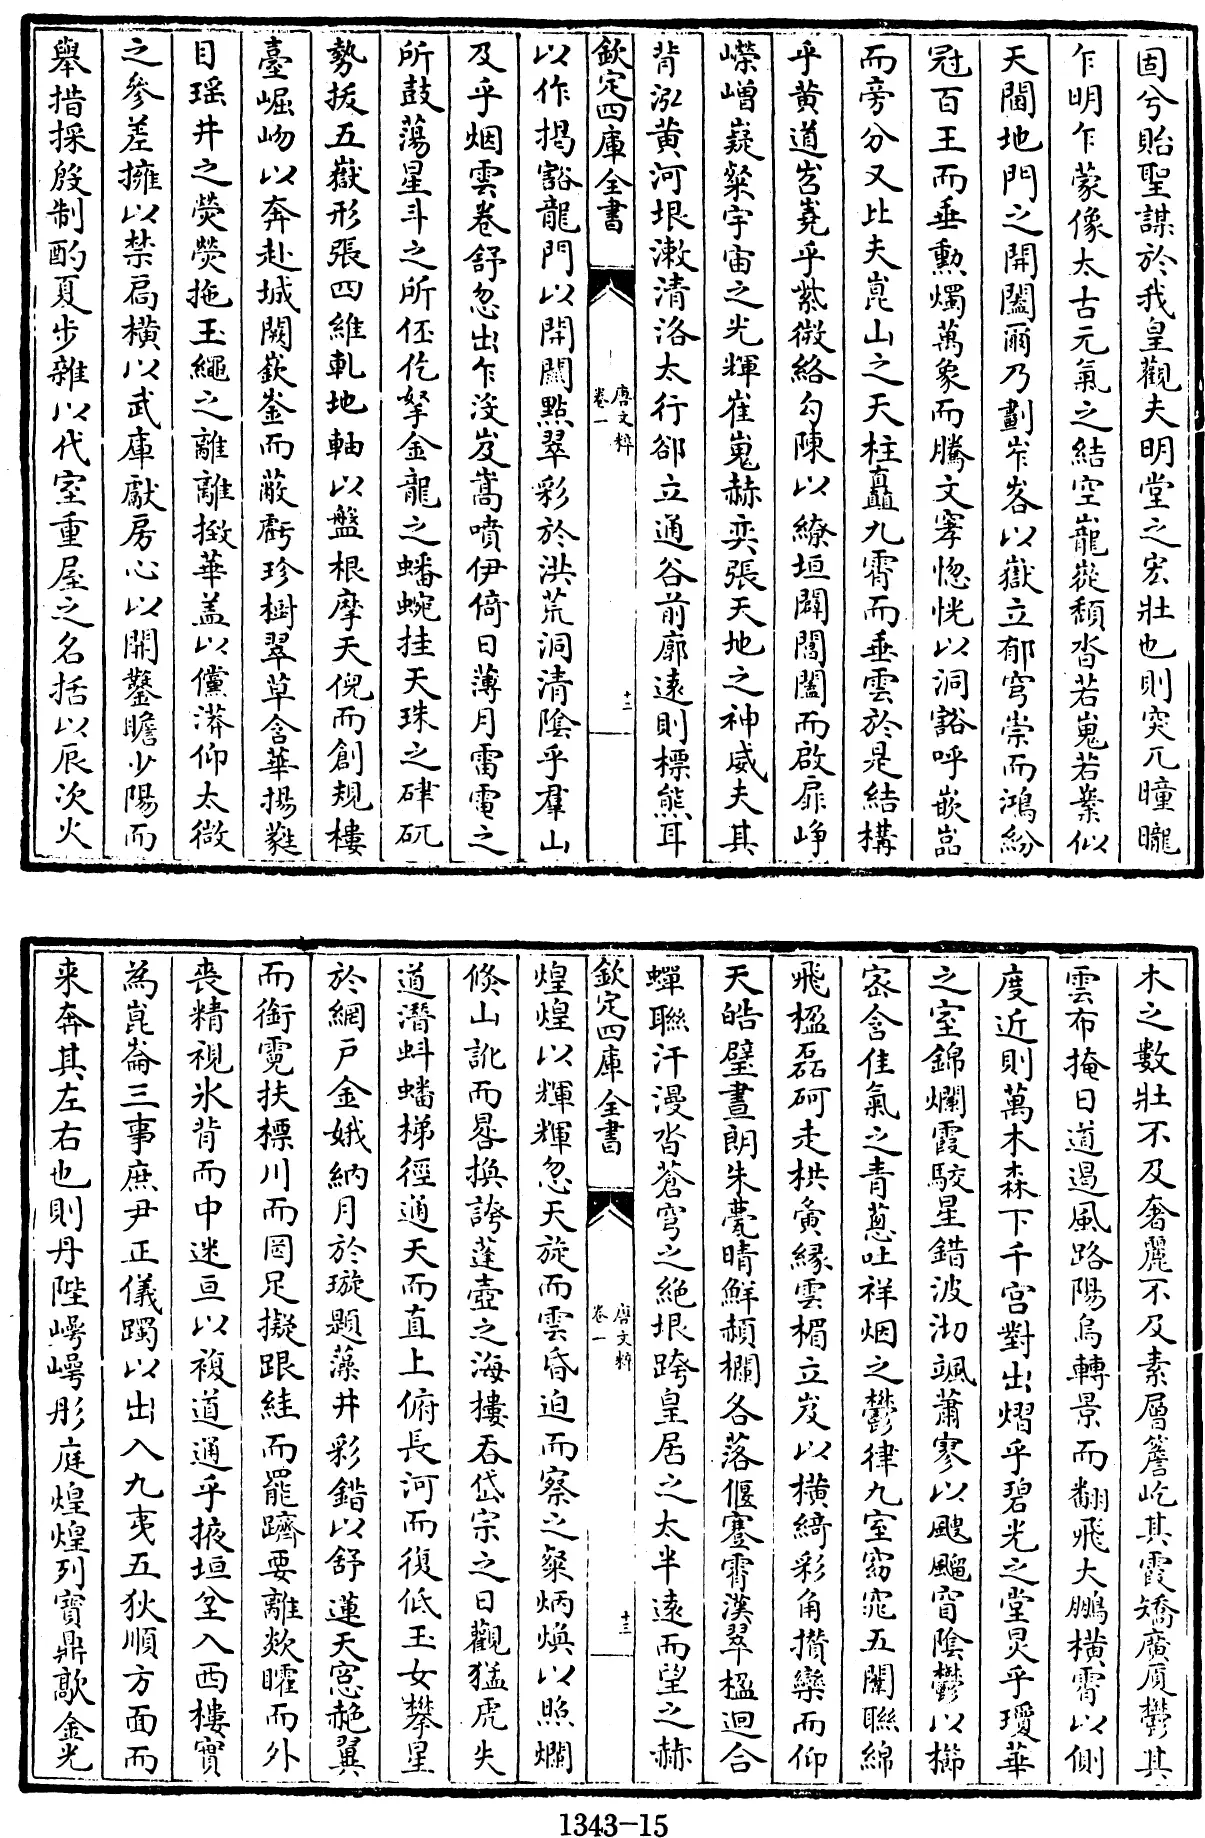 固兮貽聖謀於我皇觀夫明堂之宏壯也則突兀曈曨
乍明乍蒙像太古元氣之結空巃嵸頽沓若嵬若嶪似
天閫地門之開闔爾乃劃岝峉以嶽立郁穹崇而鴻紛
冠百王而垂勲燭萬象而騰文窙惚恍以洞豁呼嵌嵓
而旁分又比夫崑山之天柱矗九霄而垂雲於是結構
乎黄道岧嶤乎紫微絡勾陳以繚垣闢閶闔而啟扉峥
嶸嶒嶷粲宇宙之光輝崔嵬赫奕張天地之神威夫其
背泓黄河垠漱清洛太行郤立通谷前廓遠則標熊耳
欽定四庫全書
唐文粹
卷一
十二
以作揭豁龍門以開關點翠彩於洪荒洞清隂乎羣山
及乎烟雲卷舒忽出乍没岌嵩噴伊倚日薄月雷電之
所鼓蕩星斗之所伾仡拏金龍之蟠蜿挂天珠之硉矹
勢拔五嶽形張四維軋地軸以盤根摩天倪而創規樓
臺崛岉以奔赴城闕嶔崟而蔽虧珍樹翠草含華揚蕤
目瑶井之熒熒拖玉繩之離離撠華盖以儻漭仰太微
之參差擁以禁扃横以武庫獻房心以開鑿瞻少陽而
舉措採殷制酌夏步雜以代室重屋之名括以辰次火
木之數壯不及奢麗不及素層簷屹其霞矯廣厦鬱其
雲布掩日道遏風路陽烏轉景而翻飛大鵬横霄以側
度近則萬木森下千宫對出熠乎碧光之堂炅乎瓊華
之室錦爛霞駮星錯波沏颯蕭寥以颼飀窅隂鬱以櫛
宻含佳氣之青葱吐祥烟之鬱律九室窈窕五闈聯綿
飛楹磊砢走栱夤縁雲楣立岌以横綺彩角攢欒而仰
天皓壁晝朗朱甍晴鮮赬欄各落偃蹇霄漢翠楹迴合
蟬聯汗漫沓蒼穹之絶垠跨皇居之太半遠而望之赫
欽定四庫全書
唐文粹
卷一
十三
煌煌以輝輝忽天旋而雲昏迫而察之粲炳煥以照爛
倐山訛而晷換誇蓬壺之海樓吞岱宗之日觀猛虎失
道潛虯蟠梯徑通天而直上俯長河而復低玉女攀星
於網户金娥納月於璇題藻井彩錯以舒蓮天窓赩翼
而銜霓扶標川而罔足擬跟絓而罷躋要離欻矐而外
喪精視氷背而中迷亘以複道通乎掖垣坌入西樓實
為崑崙三事庶尹正儀躅以出入九夷五狄順方面而
来奔其左右也則丹陛崿崿彤庭煌煌列寶鼎歊金光
1343-15